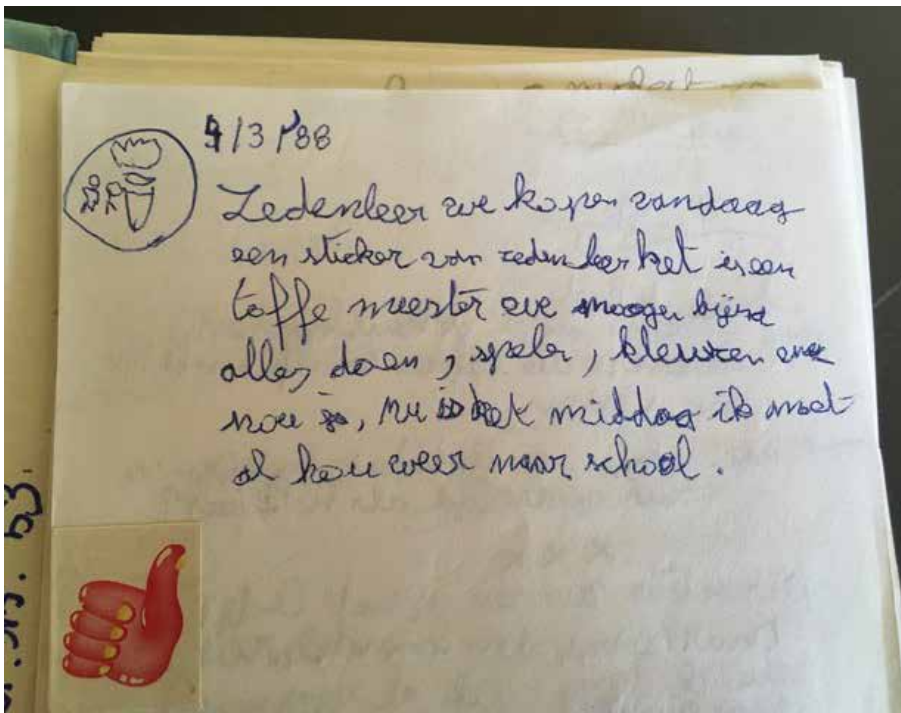 9/3/'88
Zedenleer we kopen vandaag
een sticker van zedenleer het is een
toffe meester we moogen bijna
alles doen, spelen, kleuren enz
nou ja, nu is het middag ik moet
al hou weer naar school.